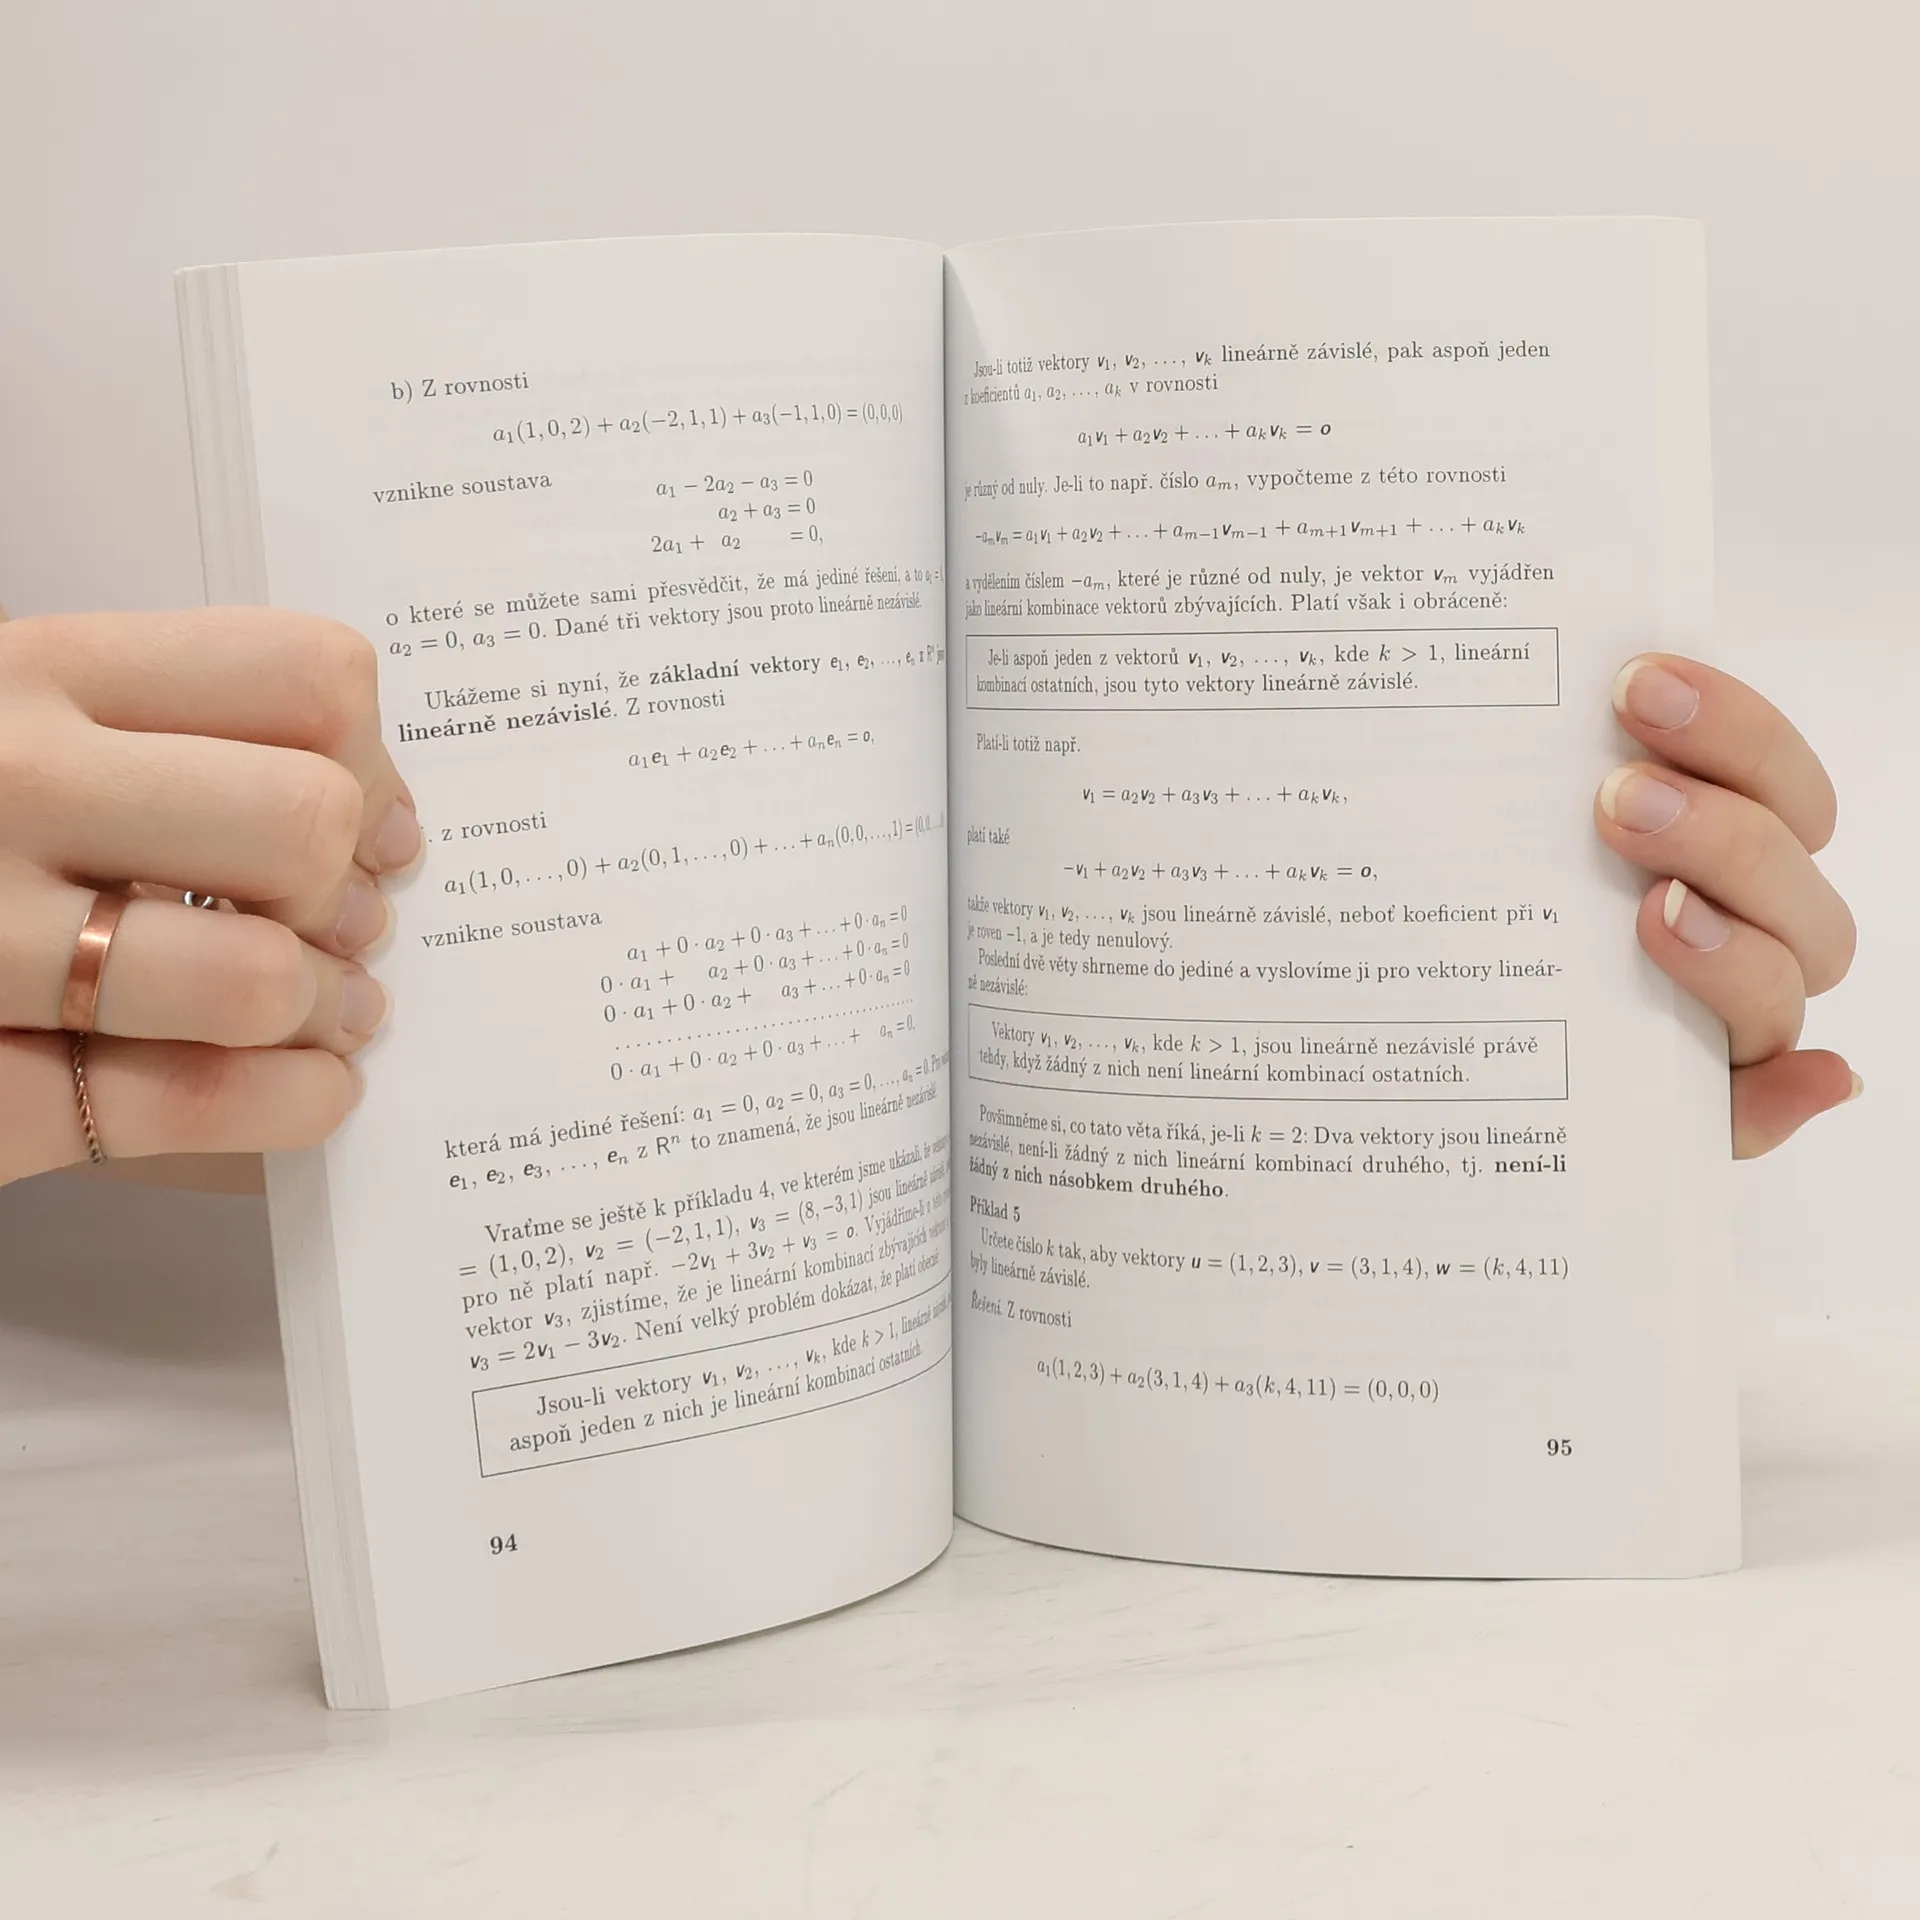 b) Z rovnosti
a₁(1, 0, 2) + a₂(−2, 1, 1) + a₃(−1, 1, 0) = (0,0,0)
vznikne soustava
a₁ − 2a₂ − a₃ = 0
a₂ + a₃ = 0
2a₁ + a₂ = 0,
o které se můžete sami přesvědčit, že má jediné řešení, a to a₁ = 0,
a₂ = 0, a₃ = 0. Dané tři vektory jsou proto lineárně nezávislé.
Ukážeme si nyní, že základní vektory e₁, e₂, …, eₙ z Rⁿ
lineárně nezávislé. Z rovnosti
a₁e₁ + a₂e₂ + … + aₙeₙ = o,
z rovnosti
a₁(1, 0, …, 0) + a₂(0, 1, …, 0) + … + aₙ(0, 0, …, 1) = (0,0,
vznikne soustava
a₁ + 0 · a₂ + 0 · a₃ + … + 0 · aₙ = 0
0 · a₁ + a₂ + 0 · a₃ + … + 0 · aₙ = 0
0 · a₁ + 0 · a₂ + a₃ + … + 0 · aₙ = 0
..............................
0 · a₁ + 0 · a₂ + 0 · a₃ + … + aₙ = 0,
která má jediné řešení: a₁ = 0, a₂ = 0, a₃ = 0, …, aₙ = 0. Pro
e₁, e₂, e₃, …, eₙ z Rⁿ to znamená, že jsou lineárně nezávislé.
Vraťme se ještě k příkladu 4, ve kterém jsme ukázali, že vektory
= (1, 0, 2), v₂ = (−2, 1, 1), v₃ = (8, −3, 1) jsou lineárně
pro ně platí např. −2v₁ + 3v₂ + v₃ = o. Vyjádříme-li z této
vektor v₃, zjistíme, že je lineární kombinací zbývajících
v₃ = 2v₁ − 3v₂. Není velký problém dokázat, že platí obecně:
Jsou-li vektory v₁, v₂, …, vₖ, kde k > 1, lineárně
aspoň jeden z nich je lineární kombinací ostatních.
94
Jsou-li totiž vektory v₁, v₂, …, vₖ lineárně závislé, pak aspoň jeden
z koeficientů a₁, a₂, …, aₖ v rovnosti
a₁v₁ + a₂v₂ + … + aₖvₖ = o
je různý od nuly. Je-li to např. číslo aₘ, vypočteme z této rovnosti
−aₘvₘ = a₁v₁ + a₂v₂ + … + aₘ₋₁vₘ₋₁ + aₘ₊₁vₘ₊₁ + … + aₖvₖ
a vydělením číslem −aₘ, které je různé od nuly, je vektor vₘ vyjádřen
jako lineární kombinace vektorů zbývajících. Platí však i obráceně:
Je-li aspoň jeden z vektorů v₁, v₂, …, vₖ, kde k > 1, lineární
kombinací ostatních, jsou tyto vektory lineárně závislé.
Platí-li totiž např.
v₁ = a₂v₂ + a₃v₃ + … + aₖvₖ,
platí také
−v₁ + a₂v₂ + a₃v₃ + … + aₖvₖ = o,
takže vektory v₁, v₂, …, vₖ jsou lineárně závislé, neboť koeficient při v₁
je roven −1, a je tedy nenulový.
Poslední dvě věty shrneme do jediné a vyslovíme ji pro vektory lineár-
ně nezávislé:
Vektory v₁, v₂, …, vₖ, kde k > 1, jsou lineárně nezávislé právě
tehdy, když žádný z nich není lineární kombinací ostatních.
Povšimněme si, co tato věta říká, je-li k = 2: Dva vektory jsou lineárně
nezávislé, není-li žádný z nich lineární kombinací druhého, tj. není-li
žádný z nich násobkem druhého.
Příklad 5
Určete číslo k tak, aby vektory u = (1, 2, 3), v = (3, 1, 4), w = (k, 4, 11)
byly lineárně závislé.
Řešení. Z rovnosti
a₁(1, 2, 3) + a₂(3, 1, 4) + a₃(k, 4, 11) = (0, 0, 0)
95